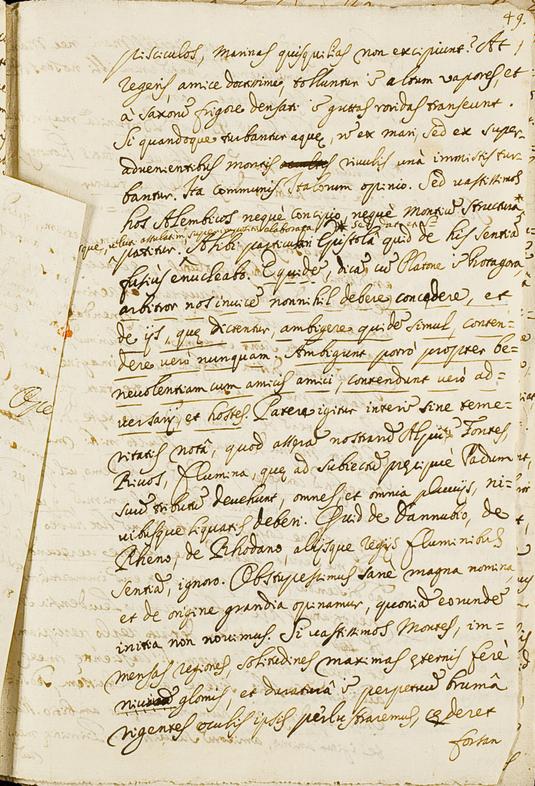 49.
pisciculos, marinas quisquilias non excipiunt? At
Regeris, amice doctissime, tolluntur ĩ altum vapores, et
à saxorũ frigore densati ĩ guttas roridas transeunt.
Si quandoque turbantur aquę, nõ ex mari, sed ex super-
advenientibus montis rivulis unà immistis tur-
bantur. Ita communis Italorum opinio. Sed vastissimos
hos Alembicos neque concipio, neque montiũ structura
patitur. Alibi particulari Epistola quid de his sentiã
fusiùs enucleabo. Equidẽ, dicã cũ Platone ĩ Protagora
arbitror nos invicẽ nonnihil debere concedere, et
de ijs, quę dicentur, ambigere quidẽ simul, conten-
dere verò nunquam. Ambigunt porrò propter be-
nevolentiam cum amicis amici, contendunt verò ad-
versarij et hostes. Patere igitur interĩ sine teme-
ritatis notâ, quod asserã nostrarũ Alpiũ Fontes
Rivos, Flumina, quę ad subiectũ pręcipuè Padum
suũ tributũ devehunt, omnes, et omnia pluvijs, ni-
vibusque liquatis deberi. Quid de Dannubio, de
Rheno, de Rhodano, alijsque regijs fluminibus
sentiã, ignoro. Obstupescimus sanè magna nomina,
et de origine grandia opinamur, quoniã eorundẽ
initia non novimus. Si vastissimos Montes, im-
mensas regiones, solitudines maximas ęternis ferè
glomis, et duraturâ ĩ perpetuũ brumâ
rigentes oculis ipsis perlustraremus, ederet
forsan